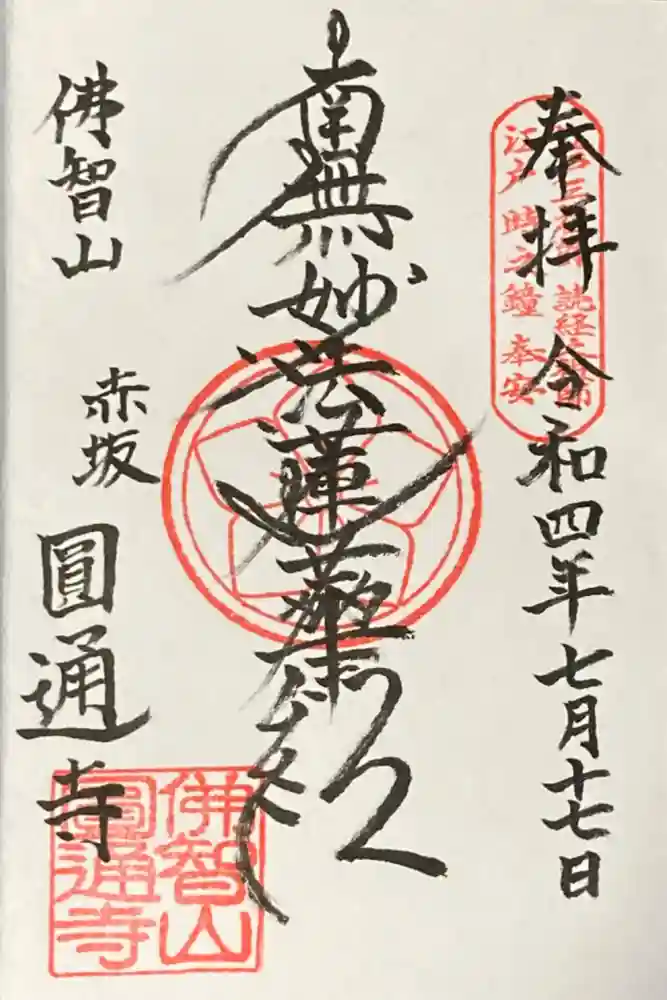 奉拝 令和四年七月十七日
三 読経
江戸時之鐘 奉安
南無妙法蓮華経
佛智山 赤坂 圓通寺
佛智山
圓通寺